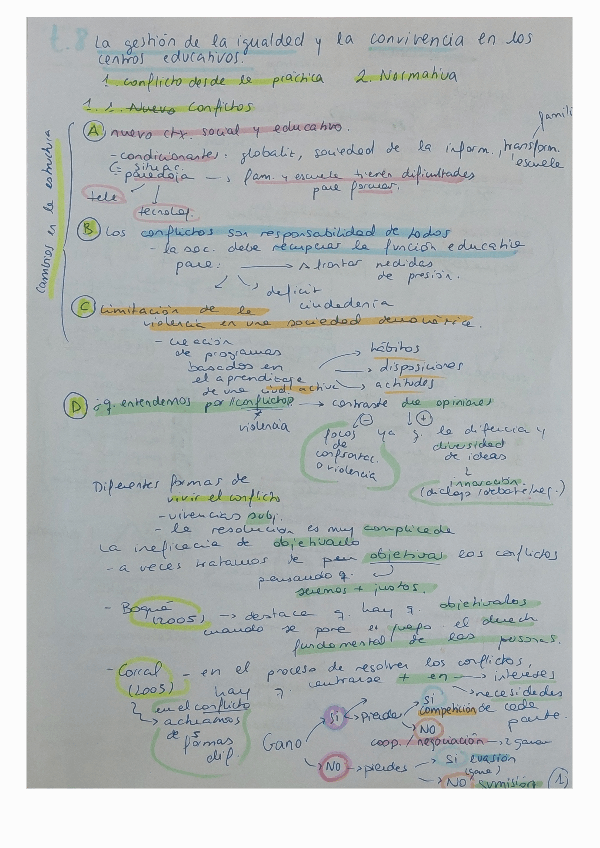 La gestión de la igualdad y la convivencia en los
centros educativos.
1. conflicto desde la práctica 2. Normativa
1.1. Nuevo conflictos
cambios en la estructura
A nuevo ctx. social y educativo.
famili
- condicionantes: globaliz, sociedad de la inform., transform.
escuela
situac.
paradoja → fam. y escuela tienen dificultades
para formar.
tele
tecnolog.
B Los conflictos son responsabilidad de todos
- la soc. debe recuperar la función educativa
para: → Afrontar medidas
de presión.
deficit
ciudadanía
C Limitación de la
violencia en una sociedad democrática.
- creación
de programas
basados en
el aprendizaje
de una ciud. activa
hábitos
→ disposiciones
→ actitudes
D ¿q. entendemos por "conflicto"? → contraste de opiniones
≠
violencia
(-) (+)
focos
de
confrontac.
o violencia
ya q. la difencia y
diversidad
de ideas
innovación.
(dialogo/debate/neg.)
Diferentes formas de
vivir el conflicto
- vivencias subj.
- la resolución es muy complicada
La ineficacia de objetivarlo
- a veces tratamos de objetivar los conflictos
pensando q.
seremos + justos.
- Boqué
(2005) → destaca q. hay q. objetivarlos
cuando se pone en juego el derech
fundamental de las personas.
- Corral
(2005) - en el proceso de resolver los conflictos,
hay q. centrarse + en → intereses
→ necesidades
de cada
parte.
en el conflicto
→ actuamos
de formas
dif.
Gano
→ SI → Pierdes
SI
competición
NO
coop. / negociación → 2 ganan
→ NO → pierdes → SI evasión
(gana)
→ NO sumisión
1